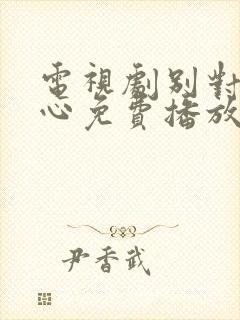 電視劇別對我動
心免費播放
尹香武